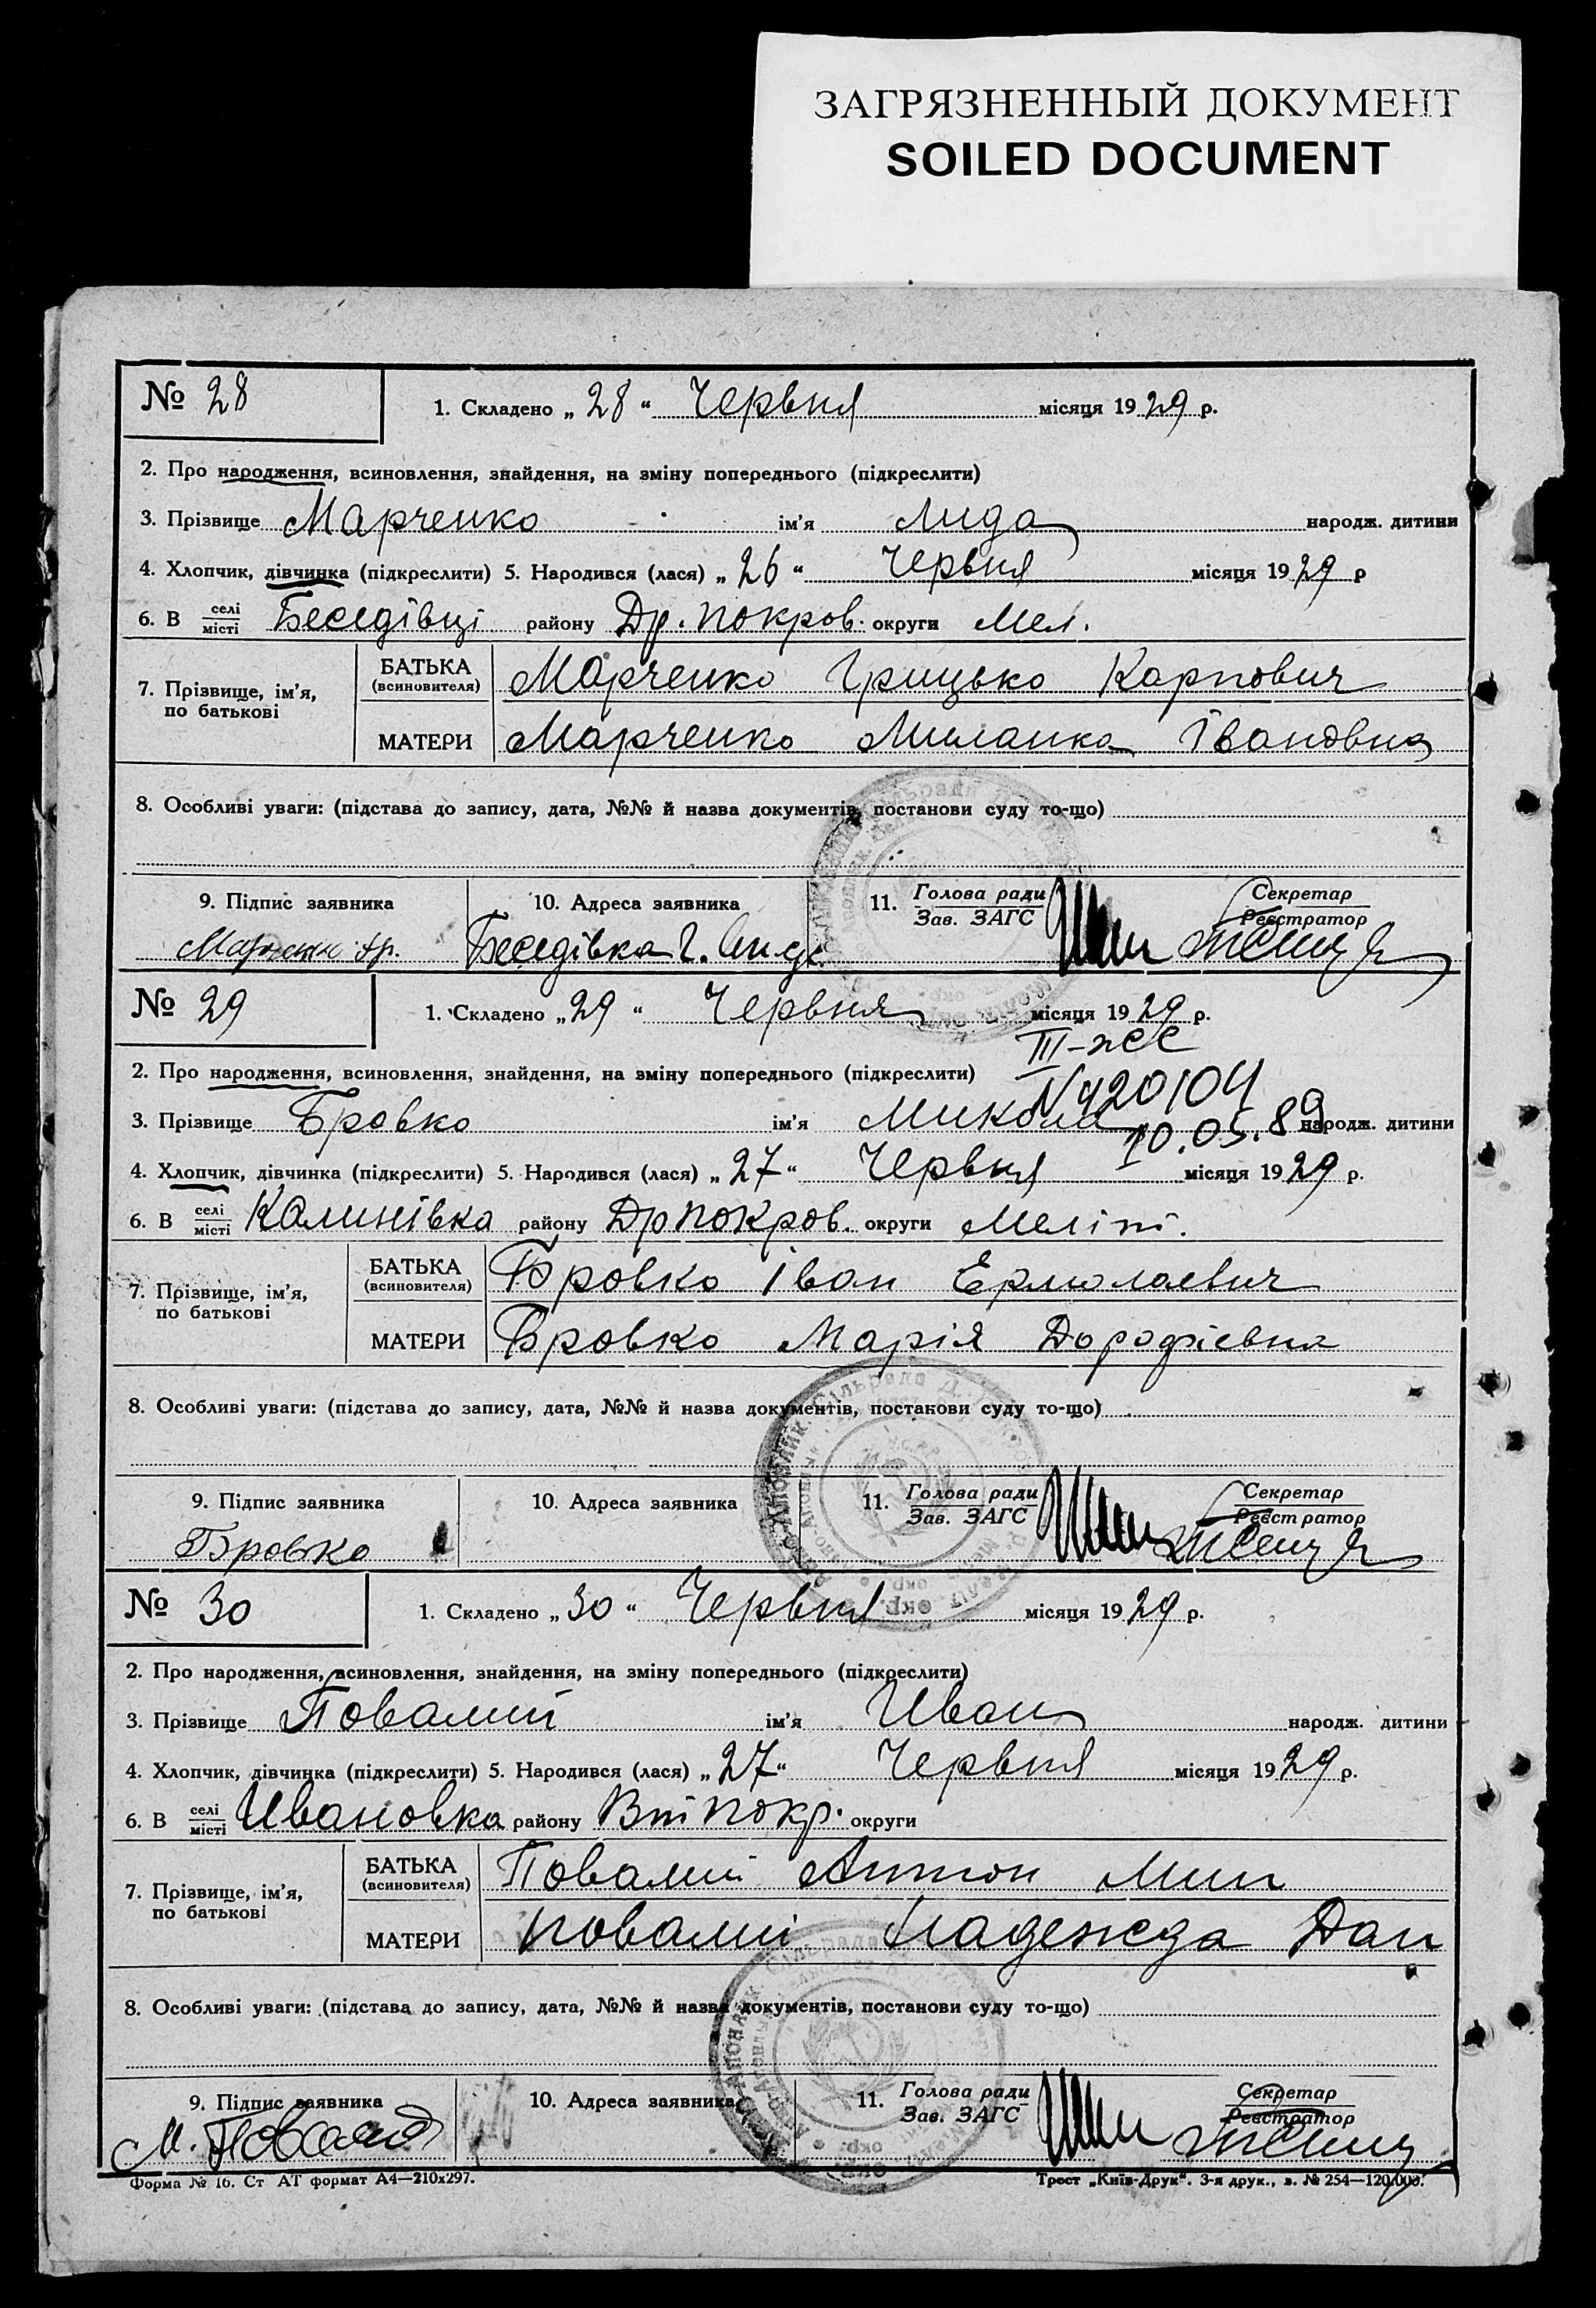 ЗАГРЯЗНЕННЫЙ ДОКУМЕНТ
SOILED DOCUMENT
№ 28
1. Складено „ 28 “ Червня місяця 1929 р.
2. Про народження, всиновлення, знайдення, на зміну попереднього (підкреслити)
3. Прізвище Марченко ім'я Лида народж. дитини
4. Хлопчик, дівчинка (підкреслити) 5. Народився (лася) „ 26 “ Червня місяця 1929 р
6. В селі місті Беседівці району Др. Покров. округи Мел.
7. Прізвище, ім'я, по батькові
БАТЬКА (всиновителя) Марченко Грицько Карпович
МАТЕРИ Марченко Миланка Івановна
8. Особливі уваги: (підстава до запису, дата, №№ й назва документів, постанови суду то-що)
9. Підпис заявника
10. Адреса заявника
11. Голова ради Зав. ЗАГС
Секретар Реєстратор
Беседівка
№ 29
1. Складено „ 29 “ Червня місяця 1929 р.
III-жс
2. Про народження, всиновлення, знайдення, на зміну попереднього (підкреслити)
№420104
3. Прізвище Бровко ім'я Микола народж. дитини
10.05.89
4. Хлопчик, дівчинка (підкреслити) 5. Народився (лася) „ 27 “ Червня місяця 1929 р.
6. В селі місті Калинівка району Др Покров. округи Меліт.
7. Прізвище, ім'я, по батькові
БАТЬКА (всиновителя) Бровко Іван Ермолаевич
МАТЕРИ Бровко Марія Дорофіевна
8. Особливі уваги: (підстава до запису, дата, №№ й назва документів, постанови суду то-що)
9. Підпис заявника
10. Адреса заявника
11. Голова ради Зав. ЗАГС
Секретар Реєстратор
Бровко
№ 30
1. Складено „ 30 “ Червня місяця 1929 р.
2. Про народження, всиновлення, знайдення, на зміну попереднього (підкреслити)
3. Прізвище Повалий ім'я Иван народж. дитини
4. Хлопчик, дівчинка (підкреслити) 5. Народився (лася) „ 27 “ Червня місяця 1929 р.
6. В селі місті Ивановка району Втпокр. округи
7. Прізвище, ім'я, по батькові
БАТЬКА (всиновителя) Повалий Антон Мип
МАТЕРИ Повалий Надежда Дан
8. Особливі уваги: (підстава до запису, дата, №№ й назва документів, постанови суду то-що)
9. Підпис заявника
10. Адреса заявника
11. Голова ради Зав. ЗАГС
Секретар Реєстратор
Форма № 16. Ст АТ формат А4—210x297.
Трест „Київ-Друк“. 3-я друк., з. № 254—120.000.